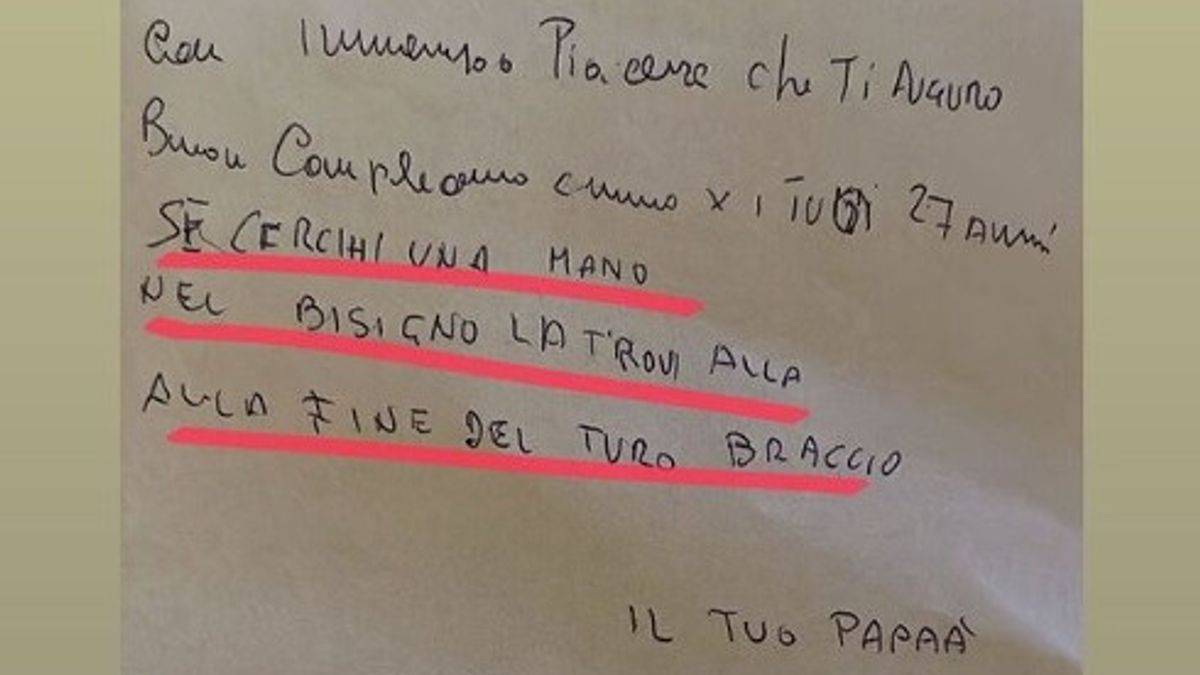 Con Immenso Piacere che Ti Auguro
Buon Compleanno anno x i TUOi 27 Anni
SE CERCIHI UNA MANO
NEL BISIGNO LA TROVI ALLA
ALLA FINE DEL TURO BRACCIO
IL TUO PAPAÀ